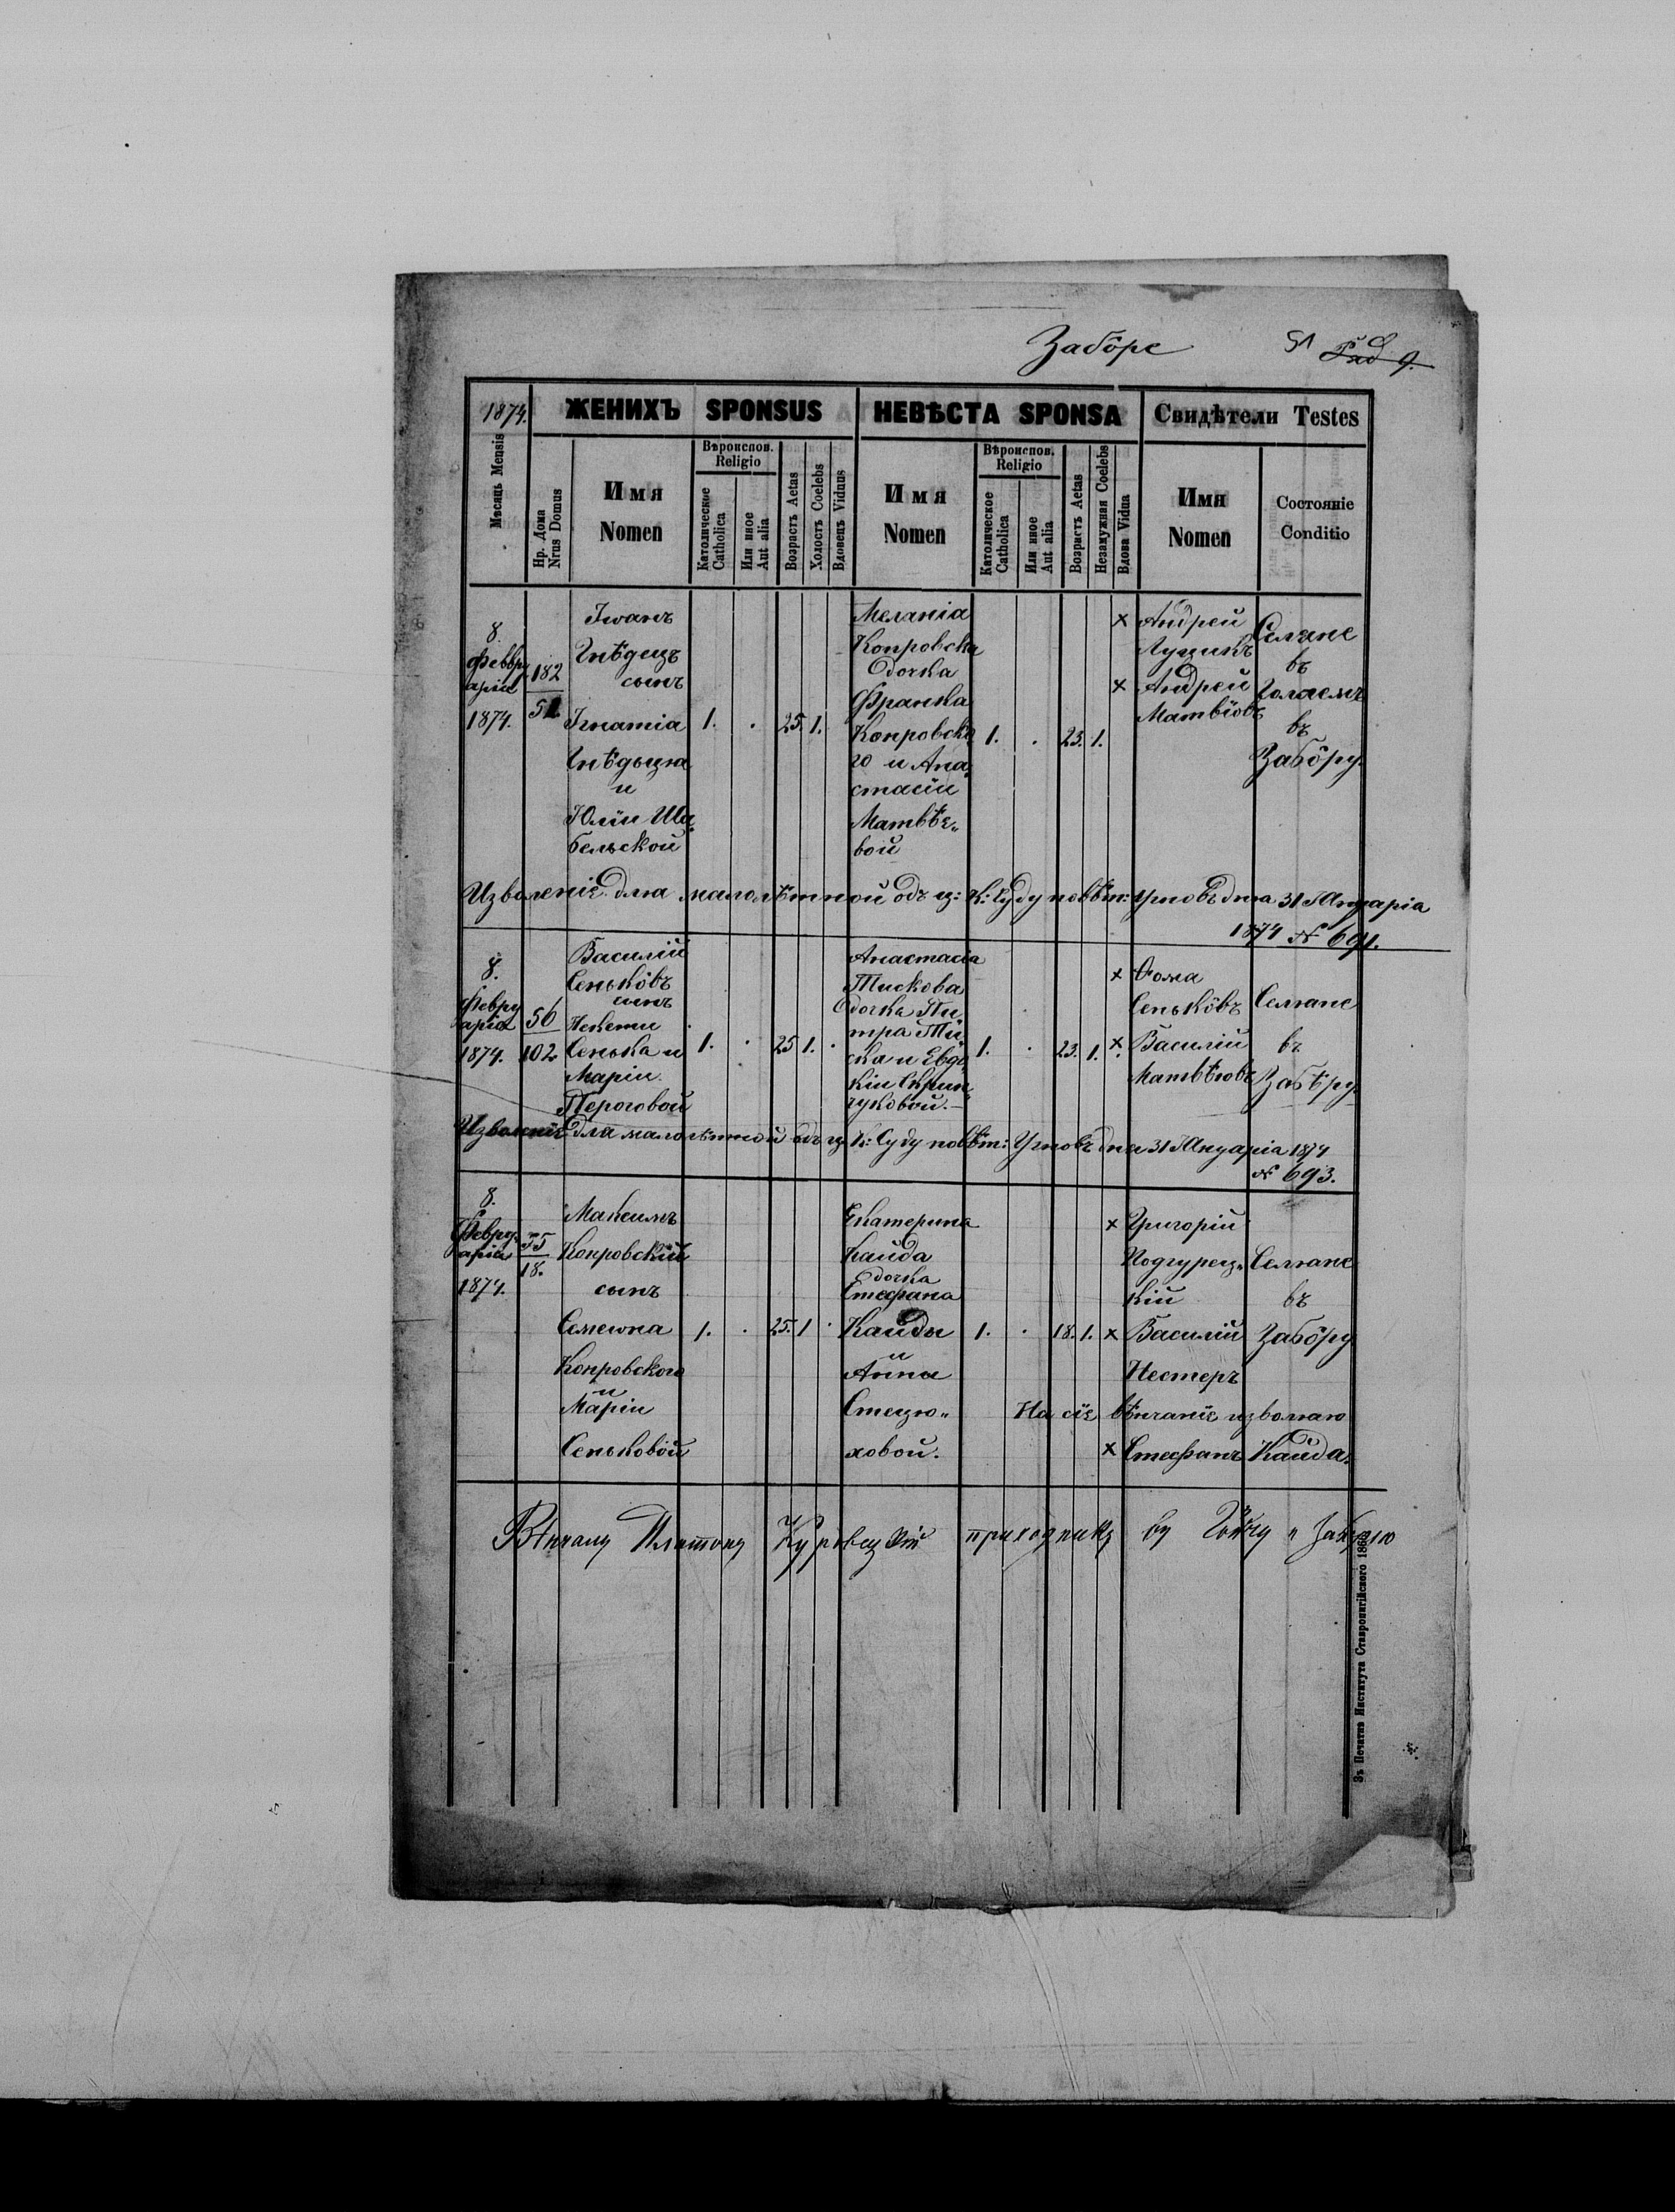 Забôре
51
1874.
ЖЕНИХЪ SPONSUS
НЕВѢСТА SPONSA
Свидѣтели Testes
Мѣсяць Mensis
Нр. Дома
Nrus Domus
Имя
Nomen
Вѣроиспов.
Religio
Католическое
Catholica
Или иное
Aut alia
Возрастъ Aetas
Холостъ Coelebs
Вдовецъ Viduus
Имя
Nomen
Вѣроиспов.
Religio
Католическое
Catholica
Или иное
Aut alia
Возрастъ Aetas
Незамужная Coelebs
Вдова Vidua
Имя
Nomen
Состоянiе
Conditio
8.
Феввру
арiя
1874.
182
51
Iванъ
Гнѣдецъ
сынъ
Iгнатiа
Гнѣдыця
и
Юлiи Ша„
бельской
1. . 25. 1.
Меланiа
Копровска
дочка
Франка
Копровско
го и Ана„
стасiи
Матвѣе„
вой
1. . 23. 1.
× Андрей
Луцикъ
× Андрей
Матвiовъ
Селяне
въ
въ
Забôру.
Изволенiе для малолѣтной одъ ц: к: Суду повѣт: Угновъ дня 31 Януарiа
1874 № 691.
8.
Февру
арiа
1874.
56
102
Василiй
Сеньковъ
сынъ
Сенька и
Марiи
Пероговой
1. . 25 1. .
Анастасiа
Тискова
дочка Пи„
тра Ти„
ска и Евдо„
кiи Скрин„
чуковой.—
1. . 23. 1.
× Фома
Сеньковъ
× Василiй
Матвѣювъ
Селяне
въ
Забôру.
Изволенiе для малолѣтной одъ ц. к: Суду повѣт: Угновъ дня 31 Януарiа 1874
№ 693.
8.
Февру„
арiа
1874.
55
18.
Максимъ
Копровскiй
сынъ
Семешка
Копровского
и
Марiи
Сеньковой
1. . 25. 1 .
Екатерина
Кайда
дочка
Стефана
Кайды
и
Анна
Стецю„
ховой.
1. . 18. 1.
× Григорiй
Подгурец„
кiй
× Василiй
Нестеръ
Селяне
въ
Забôру
На сiе вѣнчанiе изволяю
× Стефанъ Кайда.
Вѣнчалъ Платонъ приходникъ
Зъ Печатнѣ Института Ставропигiйского